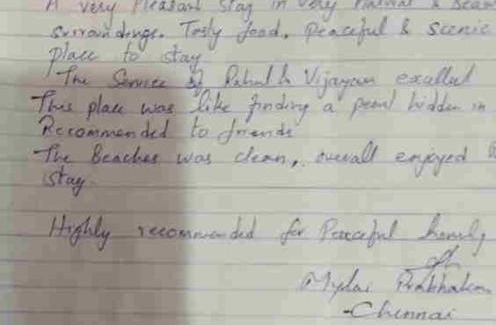 A very Pleasant stay in very natural &
surroundings. Tasty food, Peaceful & scenic
place to stay
The Service of Rahul & Vijayan excellent
This place was like finding a pearl hidden in
Recommended to friends
The Beaches was clean, overall enjoyed
stay.
Highly recommended for Peaceful
Mylai Prabhakar
-Chennai